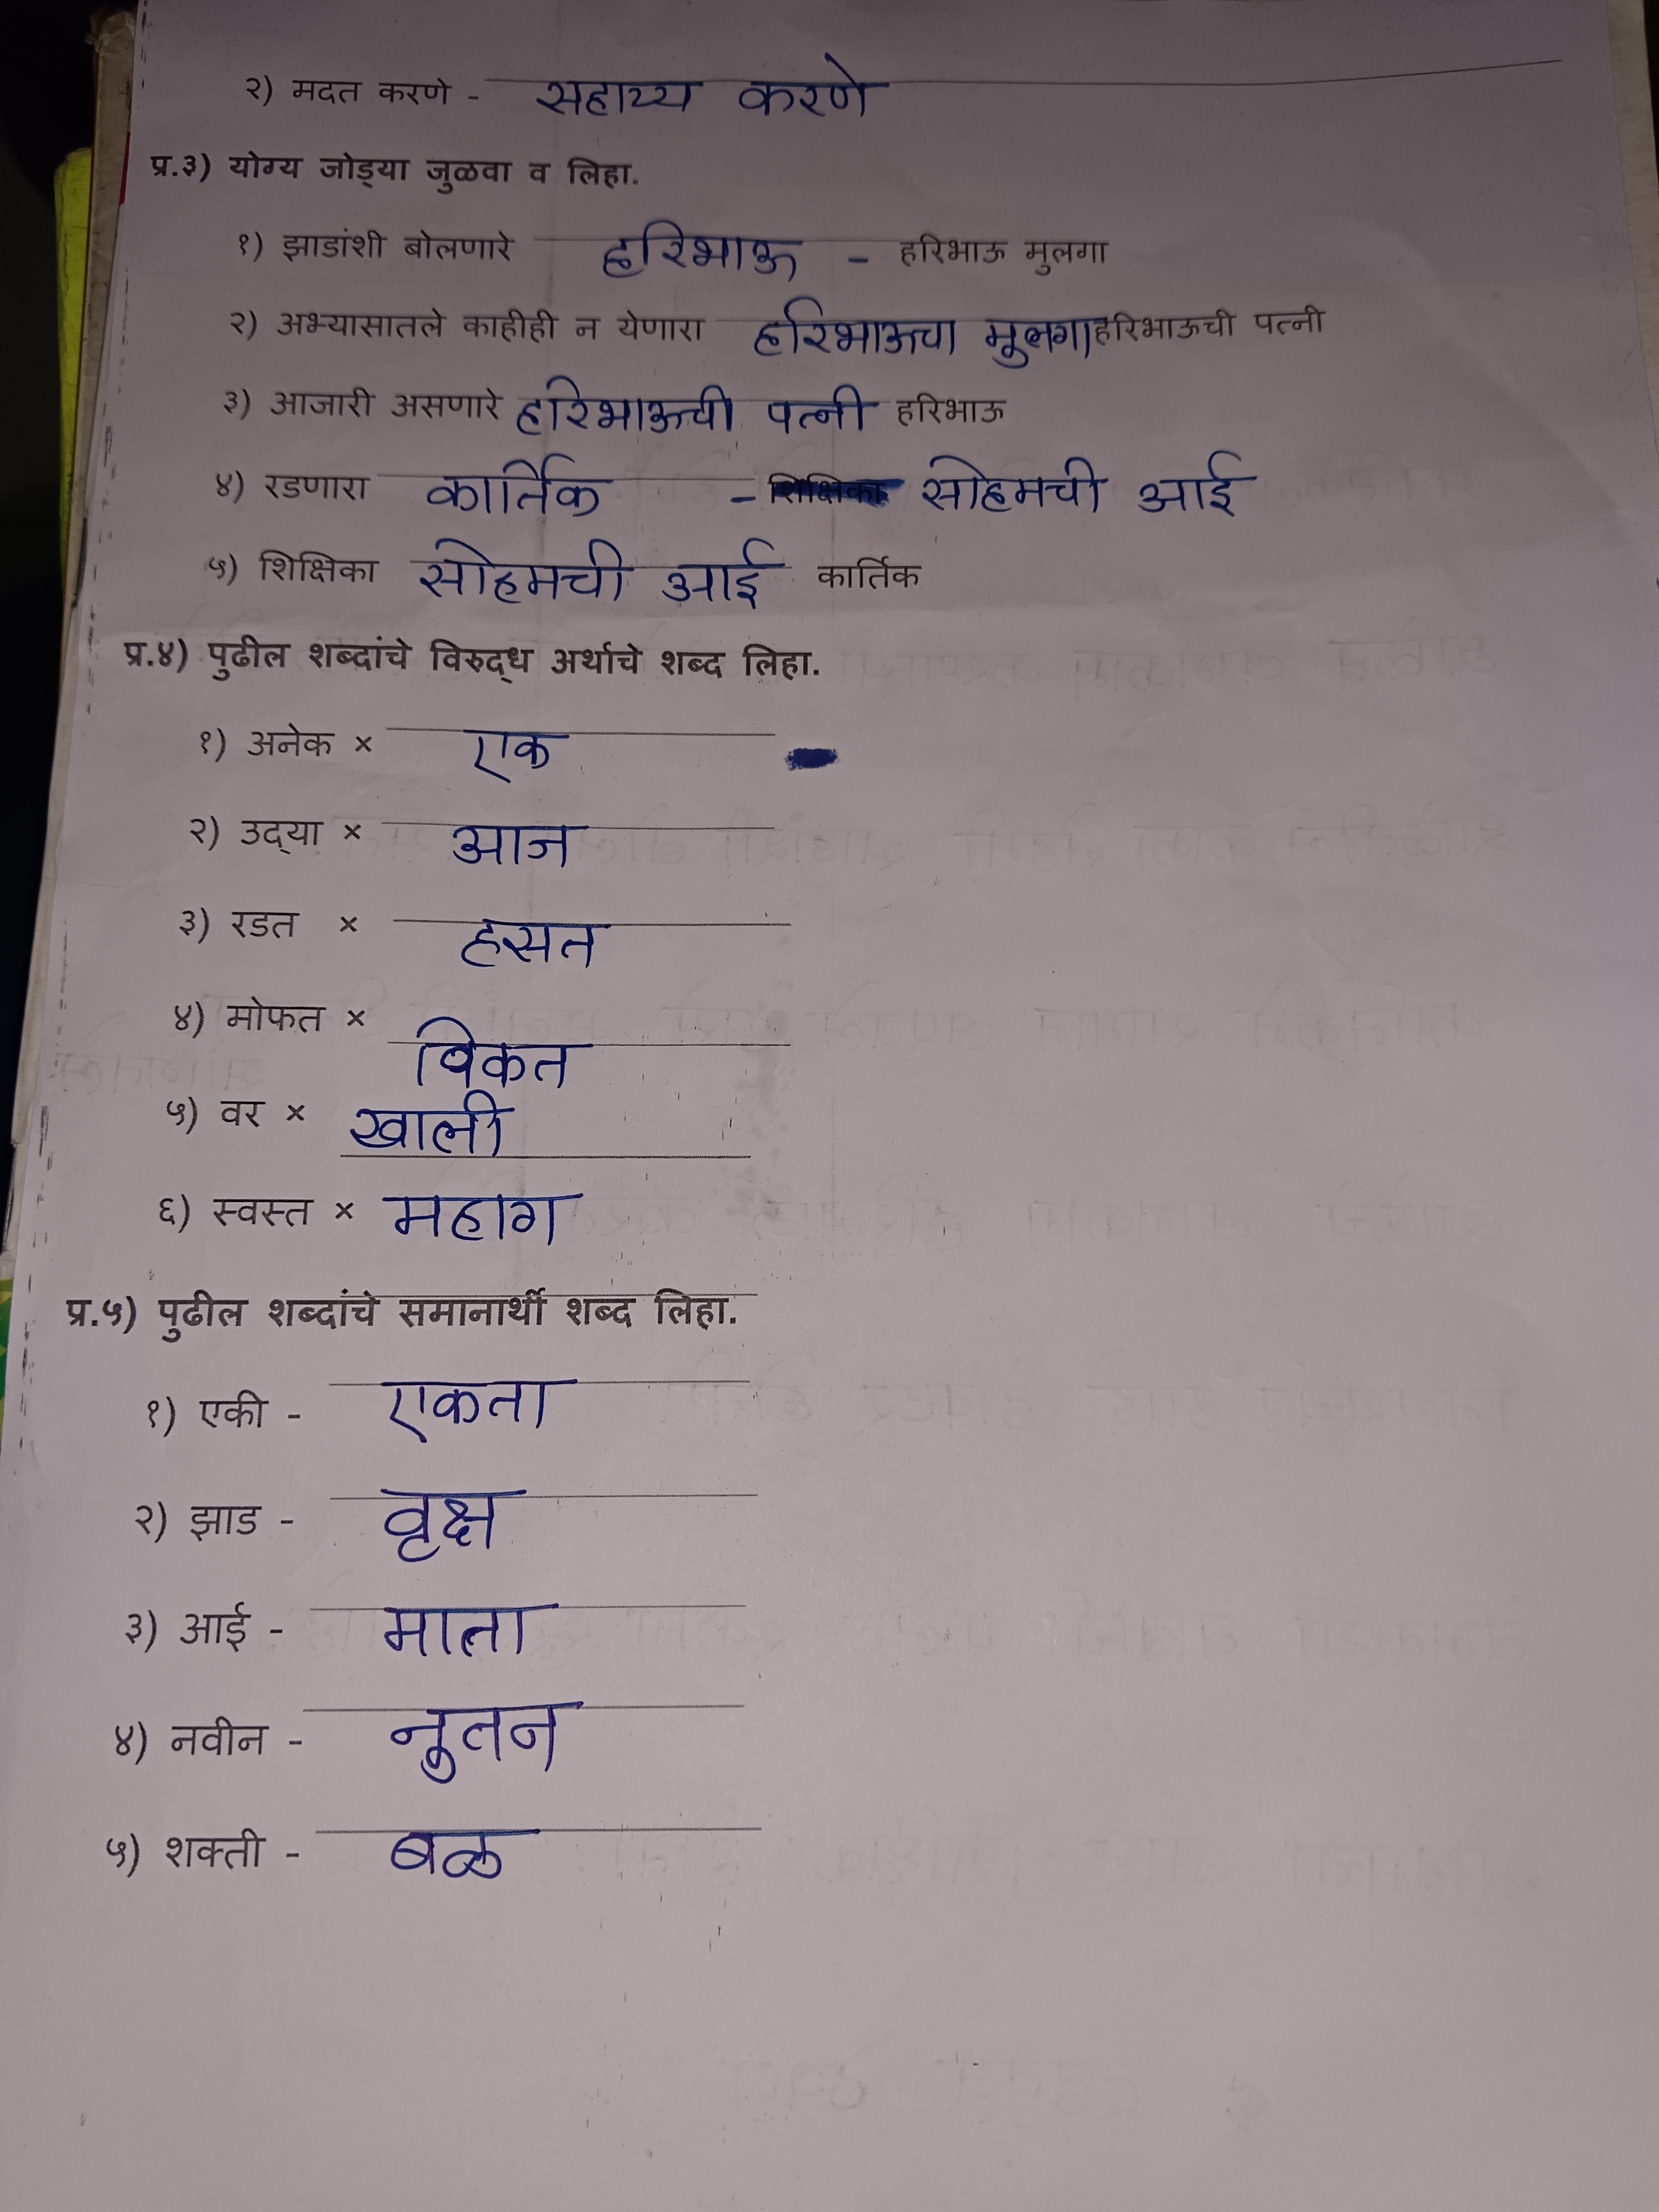 २) मदत करणे - सहाय्य करणे
प्र.३) योग्य जोड्या जुळवा व लिहा.
१) झाडांशी बोलणारे हरिभाऊ - हरिभाऊ मुलगा
२) अभ्यासातले काहीही न येणारा हरिभाऊचा मुलगा हरिभाऊची पत्नी
३) आजारी असणारे हरिभाऊची पत्नी हरिभाऊ
४) रडणारा कार्तिक - शिक्षिका सोहमची आई
५) शिक्षिका सोहमची आई कार्तिक
प्र.४) पुढील शब्दांचे विरुद्ध अर्थाचे शब्द लिहा.
१) अनेक × एक
२) उद्या × आज
३) रडत × हसत
४) मोफत × विकत
५) वर × खाली
६) स्वस्त × महाग
प्र.५) पुढील शब्दांचे समानार्थी शब्द लिहा.
१) एकी - एकता
२) झाड - वृक्ष
३) आई - माता
४) नवीन - नुतन
५) शक्ती - बळ